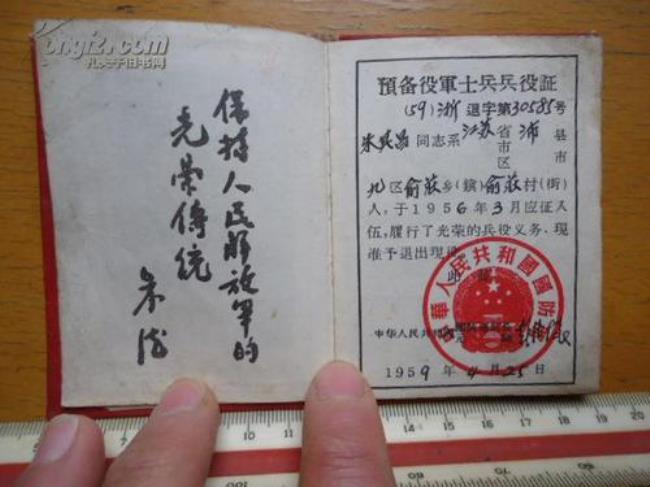 kongfz.com
孔夫子旧书网
保持人民解放军的
光荣傳統
朱德
預备役軍士兵兵役証
(59)浙退字第30585号
同志系江苏省市区沛县市
北区俞庄乡(鎮)俞庄村(街)
人,于1956年3月应征入
伍,履行了光荣的兵役义务、現
准予退出現役。
此証
中華人民共和國國防部
中华人民共和国
1959年4月25日